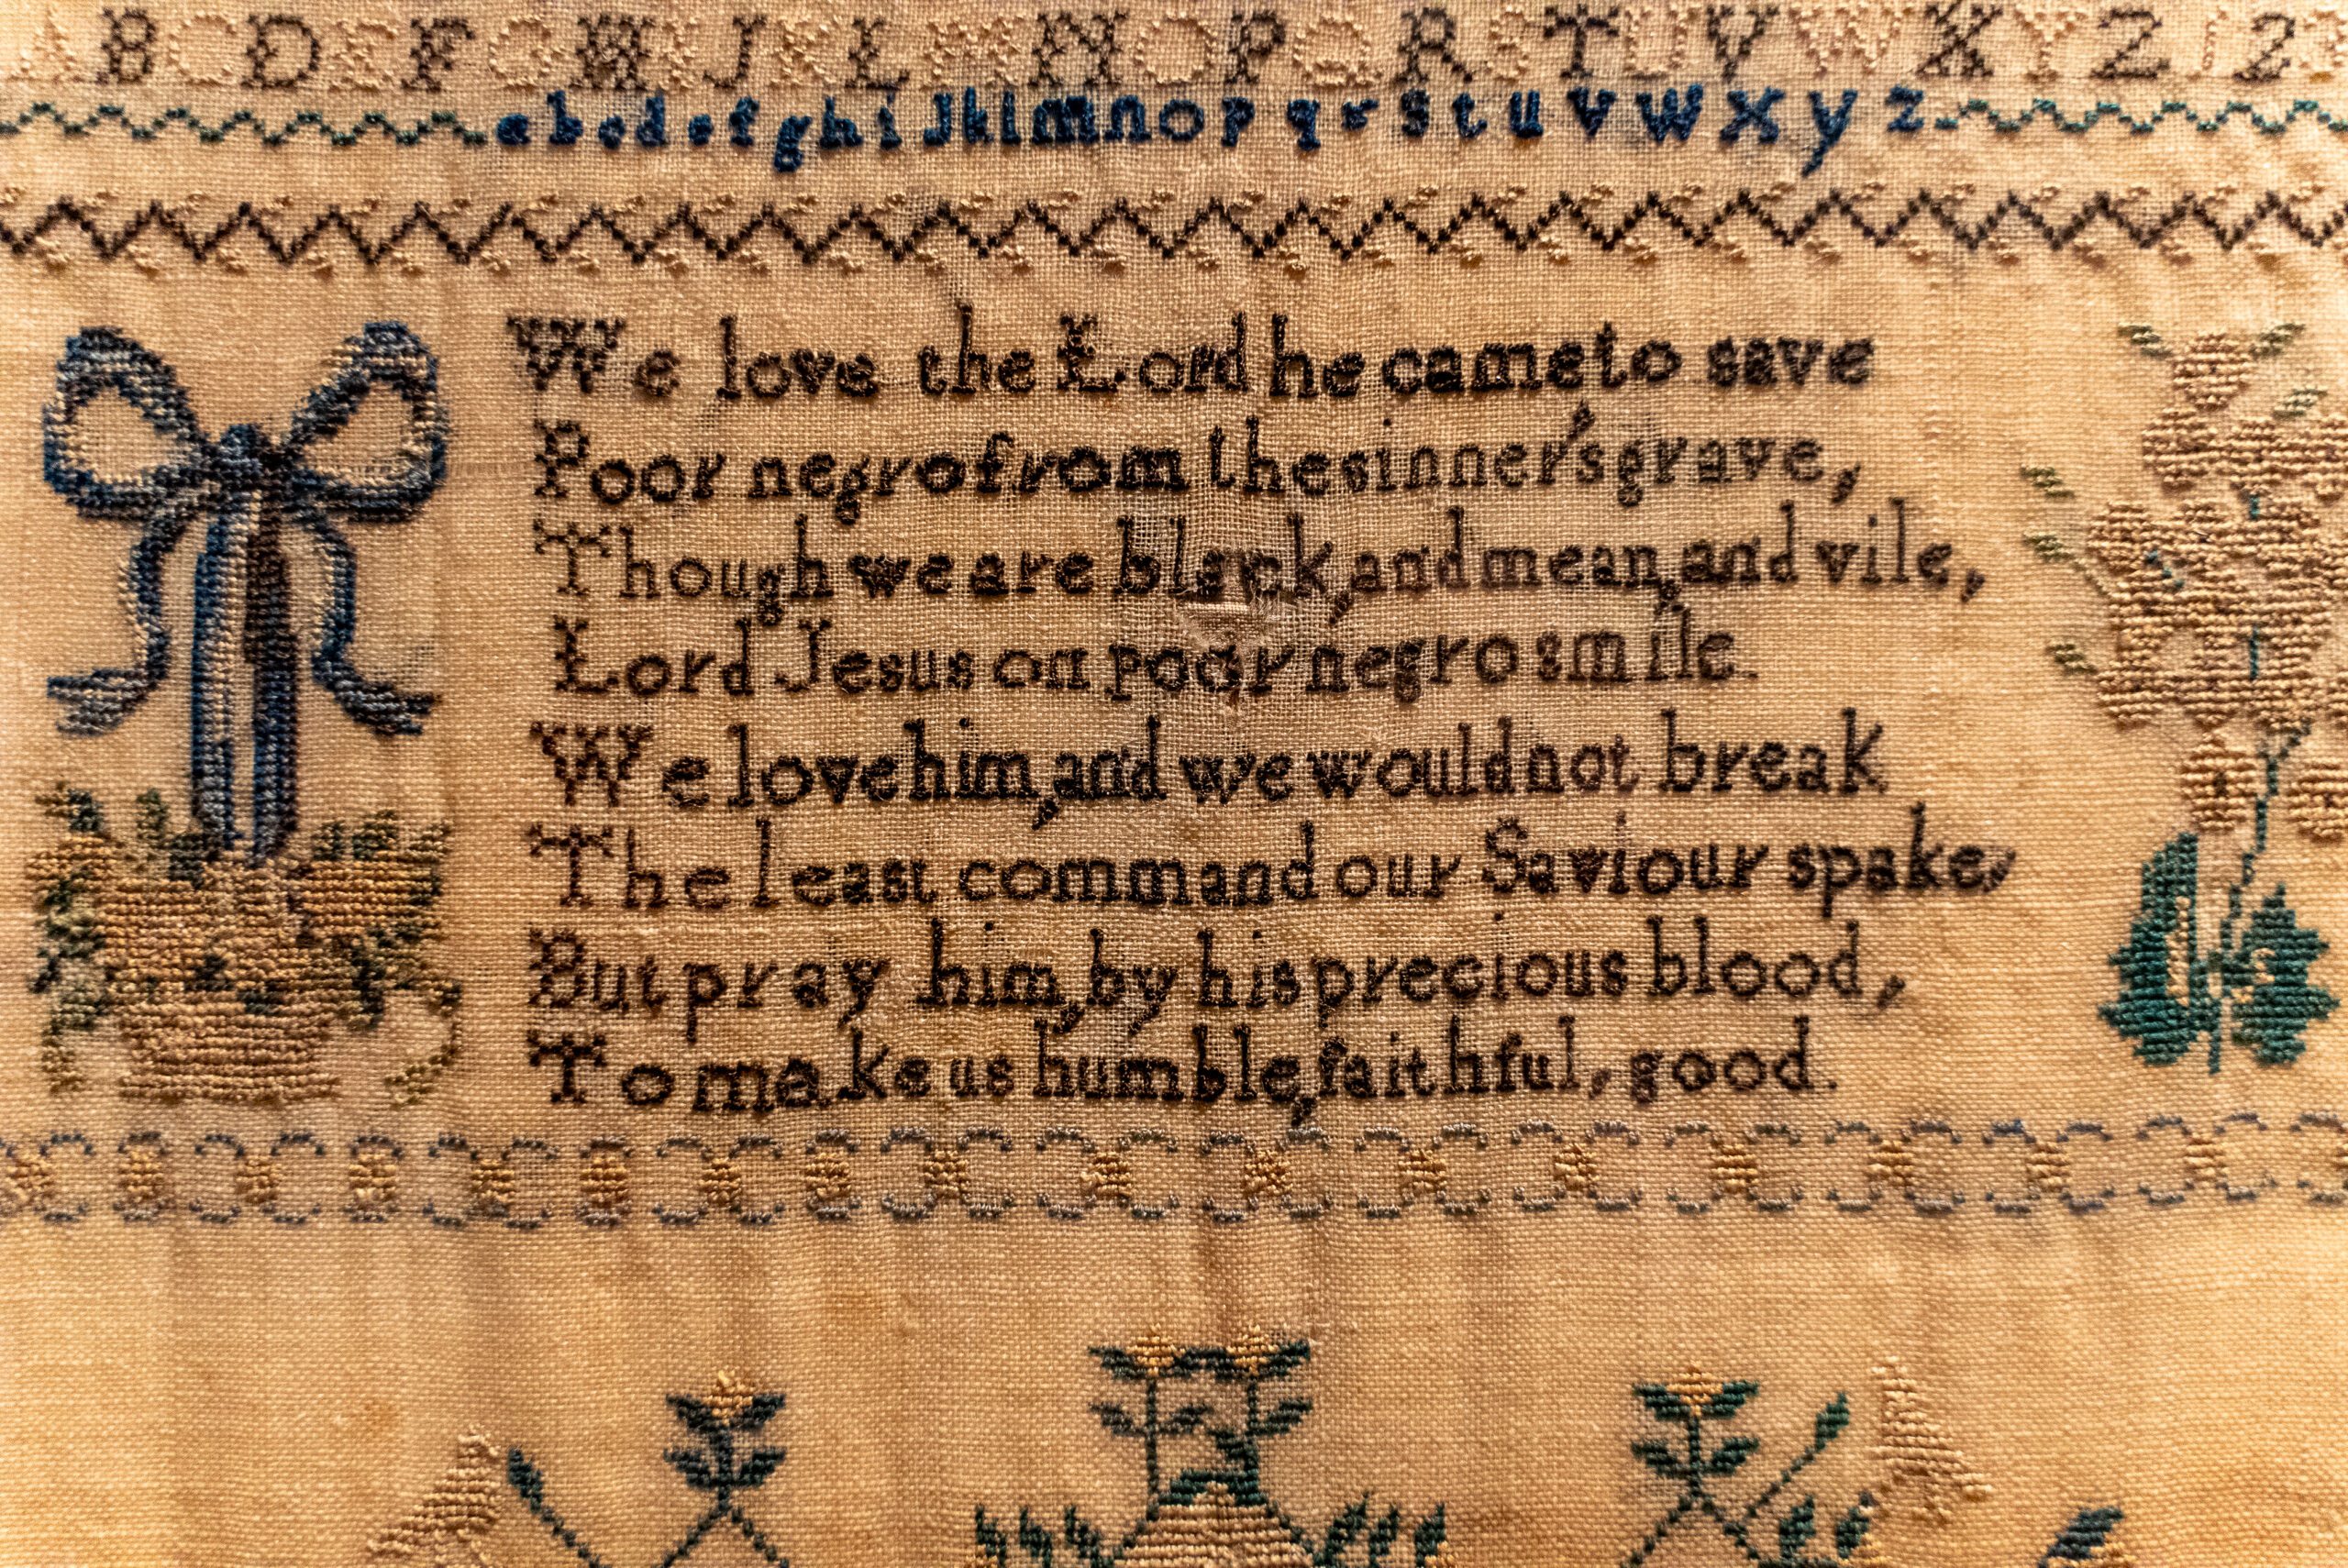 A B C D E F G H I J K L M N O P Q R S T U V W X Y Z 1 2 3
a b c d e f g h i J k l m n o p q r s t u v w x y z
We love the Lord he came, to save
Poor negro from the sinner's grave,
Though we are black, and mean, and vile,
Lord Jesus on poor negro smile.
We love him, and we would not break
The least command our Saviour spake,
But pray him, by his precious blood,
To make us humble, faithful, good.